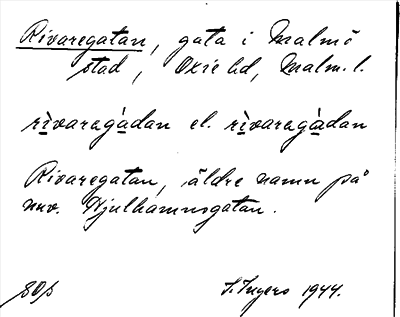 Rivaregatan, gata i Malmö
stad, Oxie hd, Malm. l.
rìvaragàdan el. rìvaragàdan
Rivaregatan, äldre namn på
nuv. Hjulhamnsgatan.
S. Ingers 1944.